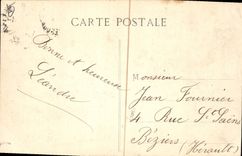 CARTE POSTALE
Bonne et heureuse
Léandre
Monsieur
Jean Fournier
4 Rue St Saëns
Béziers
(Hérault)